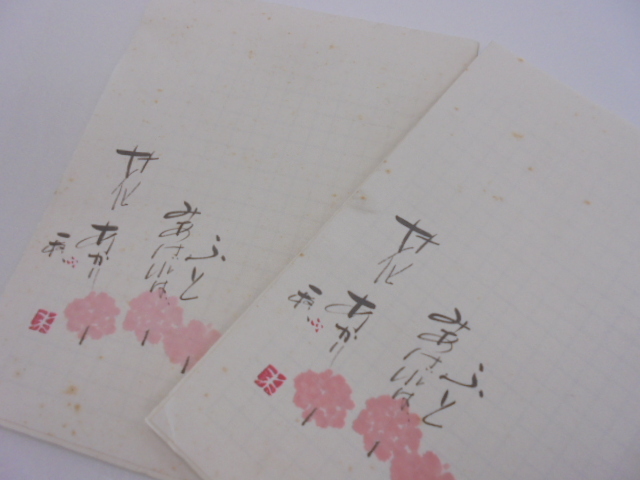 ふと
みあげれば
花
あかり
ふと
みあげれば
花
あかり